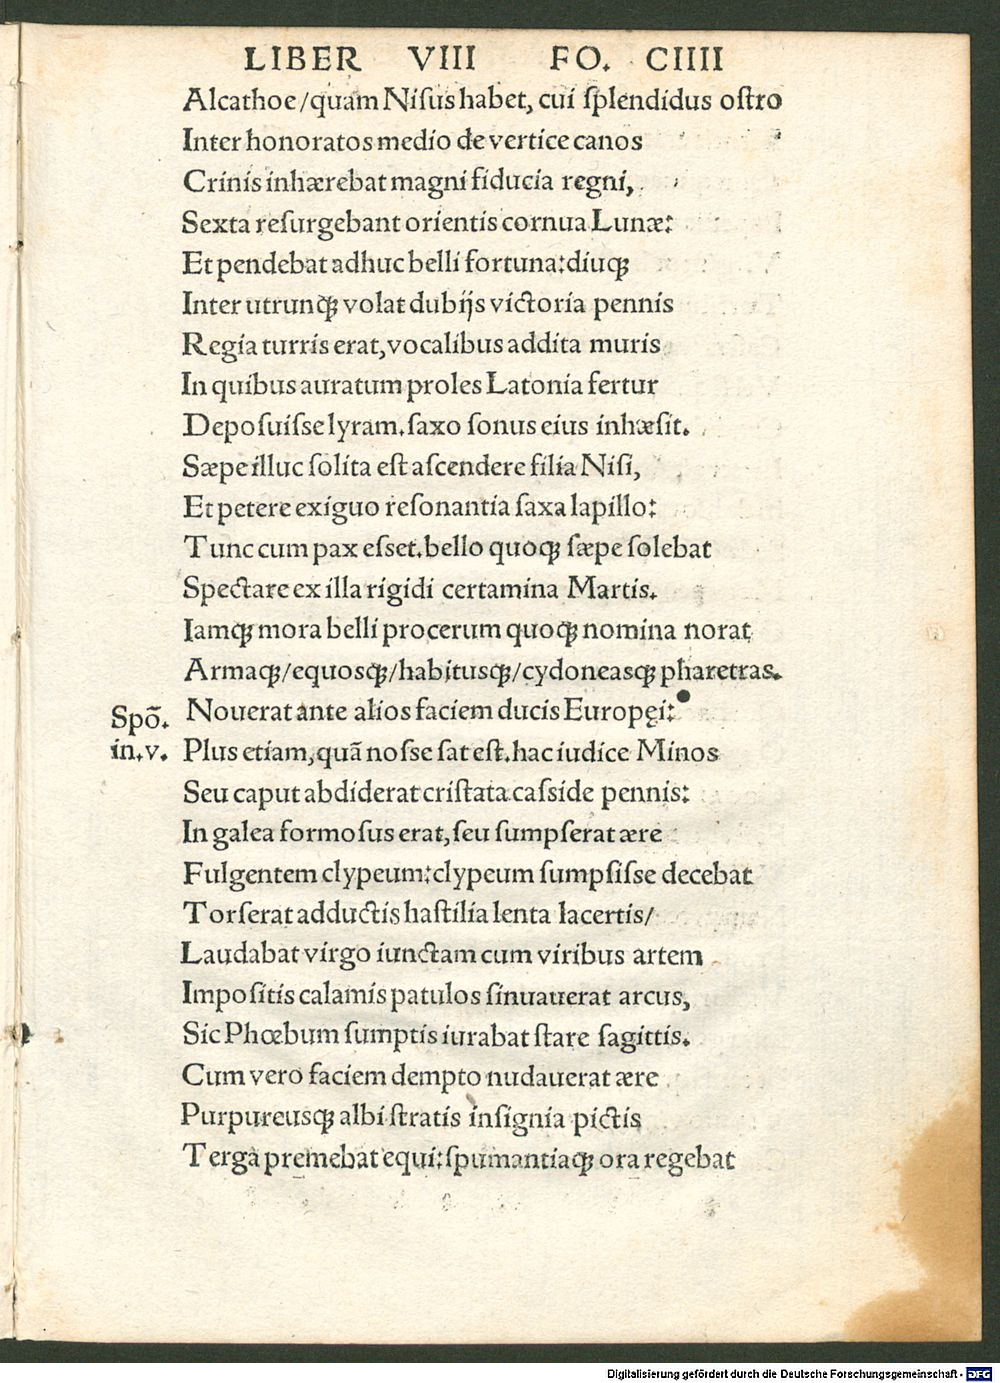 LIBER VIII FO. CIIII
Alcathoe/quam Niſus habet, cui ſplendidus oſtro
Inter honoratos medio de vertice canos
Crinis inhærebat magni fiducia regni,
Sexta reſurgebant orientis cornua Lunæ:
Et pendebat adhuc belli fortuna:diuqꝫ
Inter utrunqꝫ volat dubijs victoria pennis
Regia turris erat,vocalibus addita muris
In quibus auratum proles Latonia fertur
Depoſuiſſe lyram.ſaxo ſonus eius inhæſit.
Sæpe illuc ſolita eſt aſcendere filia Niſi,
Et petere exiguo reſonantia ſaxa lapillo:
Tunc cum pax eſſet.bello quoqꝫ ſæpe ſolebat
Spectare ex illa rigidi certamina Martis.
Iamqꝫ mora belli procerum quoqꝫ nomina norat
Armaqꝫ/equosqꝫ/habitusqꝫ/cydoneasqꝫ pharetras.
Nouerat ante alios faciem ducis Europęi:
Spō.
in.v.
Plus etiam,quā noſſe ſat eſt.hac iudice Minos
Seu caput abdiderat criſtata caſſide pennis:
In galea formoſus erat,ſeu ſumpſerat ære
Fulgentem clypeum:clypeum ſumpſiſſe decebat
Torſerat adductis haſtilia lenta lacertis/
Laudabat virgo iunctam cum viribus artem
Impoſitis calamis patulos ſinuauerat arcus,
Sic Phœbum ſumptis iurabat ſtare ſagittis.
Cum vero faciem dempto nudauerat ære
Purpureusqꝫ albi ſtratis inſignia pictis
Terga premebat equi:ſpumantiaqꝫ ora regebat
Digitalisierung gefördert durch die Deutsche Forschungsgemeinschaft - DFG